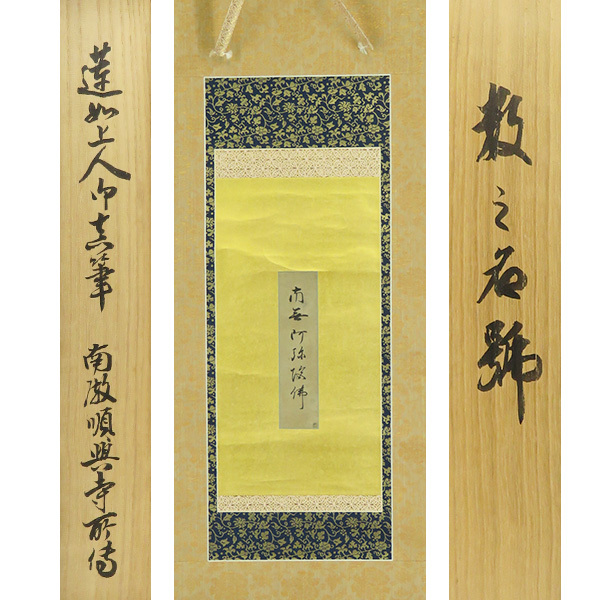 数之名號
南無阿弥陀佛
蓮如上人御真筆 南激順興寺所傳